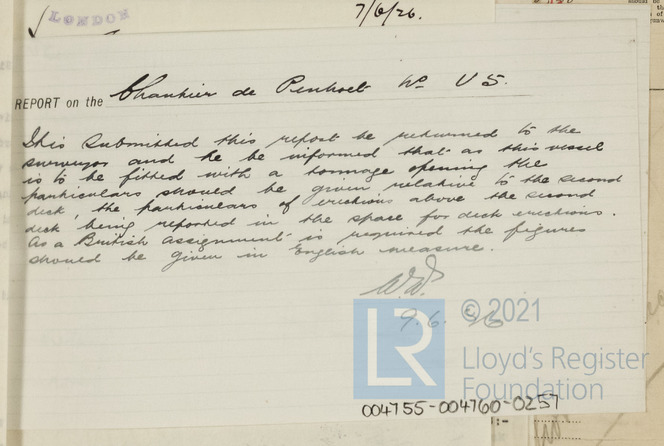 LONDON
7/6/26.
REPORT on the Chantier de Penhoet No V5.
It is submitted this report be returned to the
surveyor and he be informed that as this vessel
is to be fitted with a tonnage opening the
particulars should be given relative to the second
deck, the particulars of erections above the second
deck being reported in the space for deck erections.
As a British assignment is required the figures
should be given in English measure.
9.6.26
LR
© 2021
Lloyd's Register
Foundation
004755-004760-0257